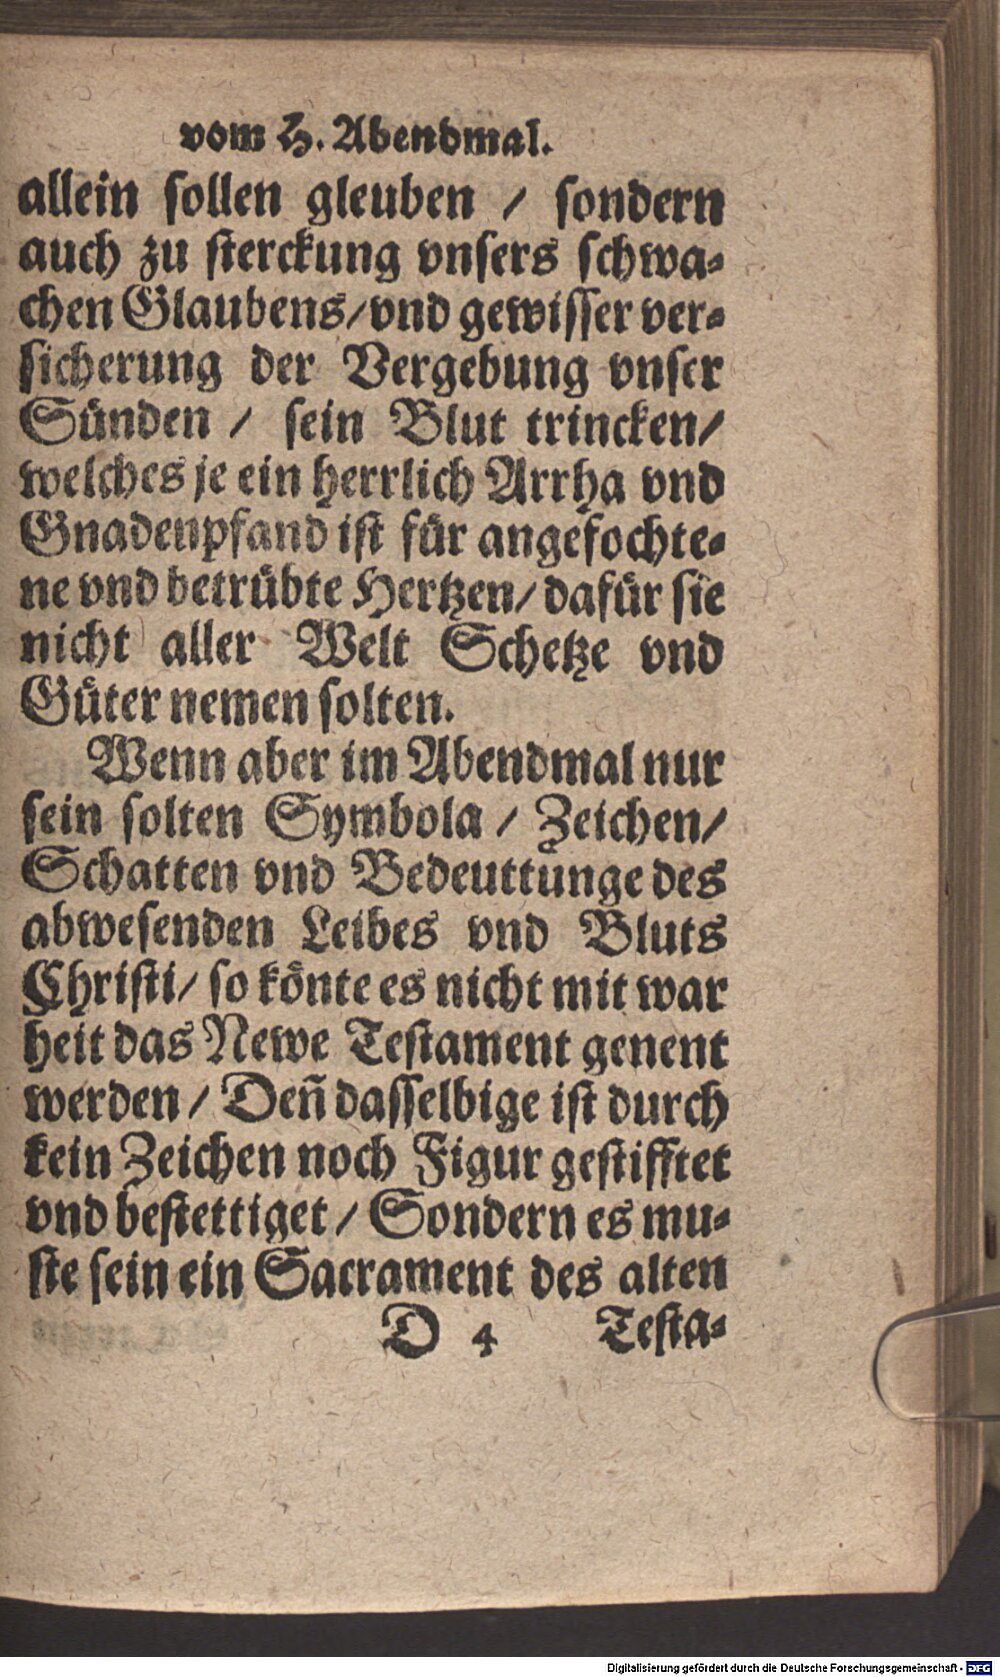 vom H. Abendmal.
allein sollen gleuben / sondern
auch zu sterckung vnsers schwa-
chen Glaubens/vnd gewisser ver-
sicherung der Vergebung vnser
Sünden / sein Blut trincken/
welches je ein herrlich Arrha vnd
Gnadenpfand ist für angefochte-
ne vnd betrübte Hertzen/ dafür sie
nicht aller Welt Schetze vnd
Güter nemen solten.
Wenn aber im Abendmal nur
sein solten Symbola / Zeichen/
Schatten vnd Bedeuttunge des
abwesenden Leibes vnd Bluts
Christi/ so könte es nicht mit war
heit das Newe Testament genent
werden / Deñ dasselbige ist durch
kein Zeichen noch Figur gestifftet
vnd bestettiget / Sondern es mu-
ste sein ein Sacrament des alten
D 4 Testa-
Digitalisierung gefördert durch die Deutsche Forschungsgemeinschaft - DFG